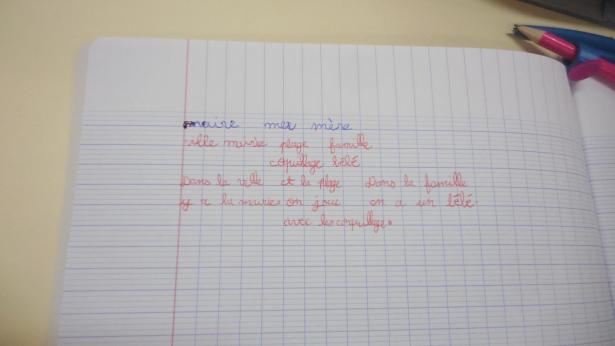 maire mer mère
ville mairie plage famille
coquillage bébé
Dans la ville et la plage Dans la famille
y a la mairie on joue on a un bébé.
avec les coquillages.